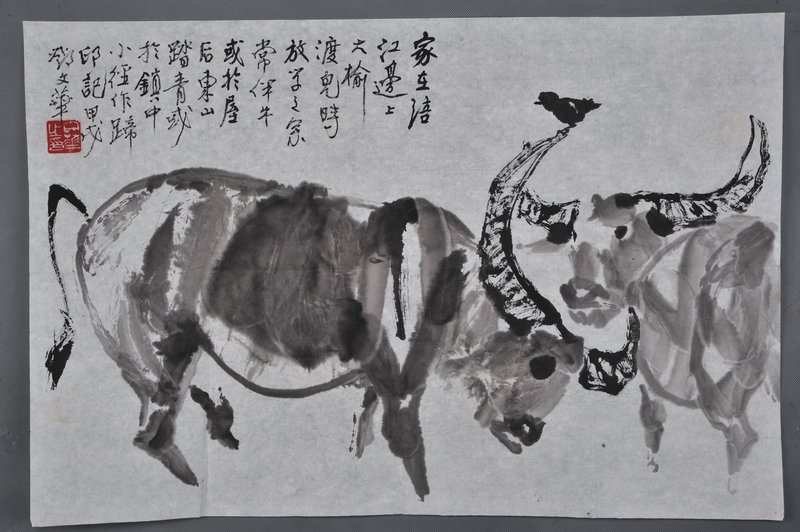 家在涪
江邊上
大榆
渡兒時
放學之余
常伴牛
或於屋
后東山
踏青或
於鎮中
小径作蹄
印記甲戌
鄧文華